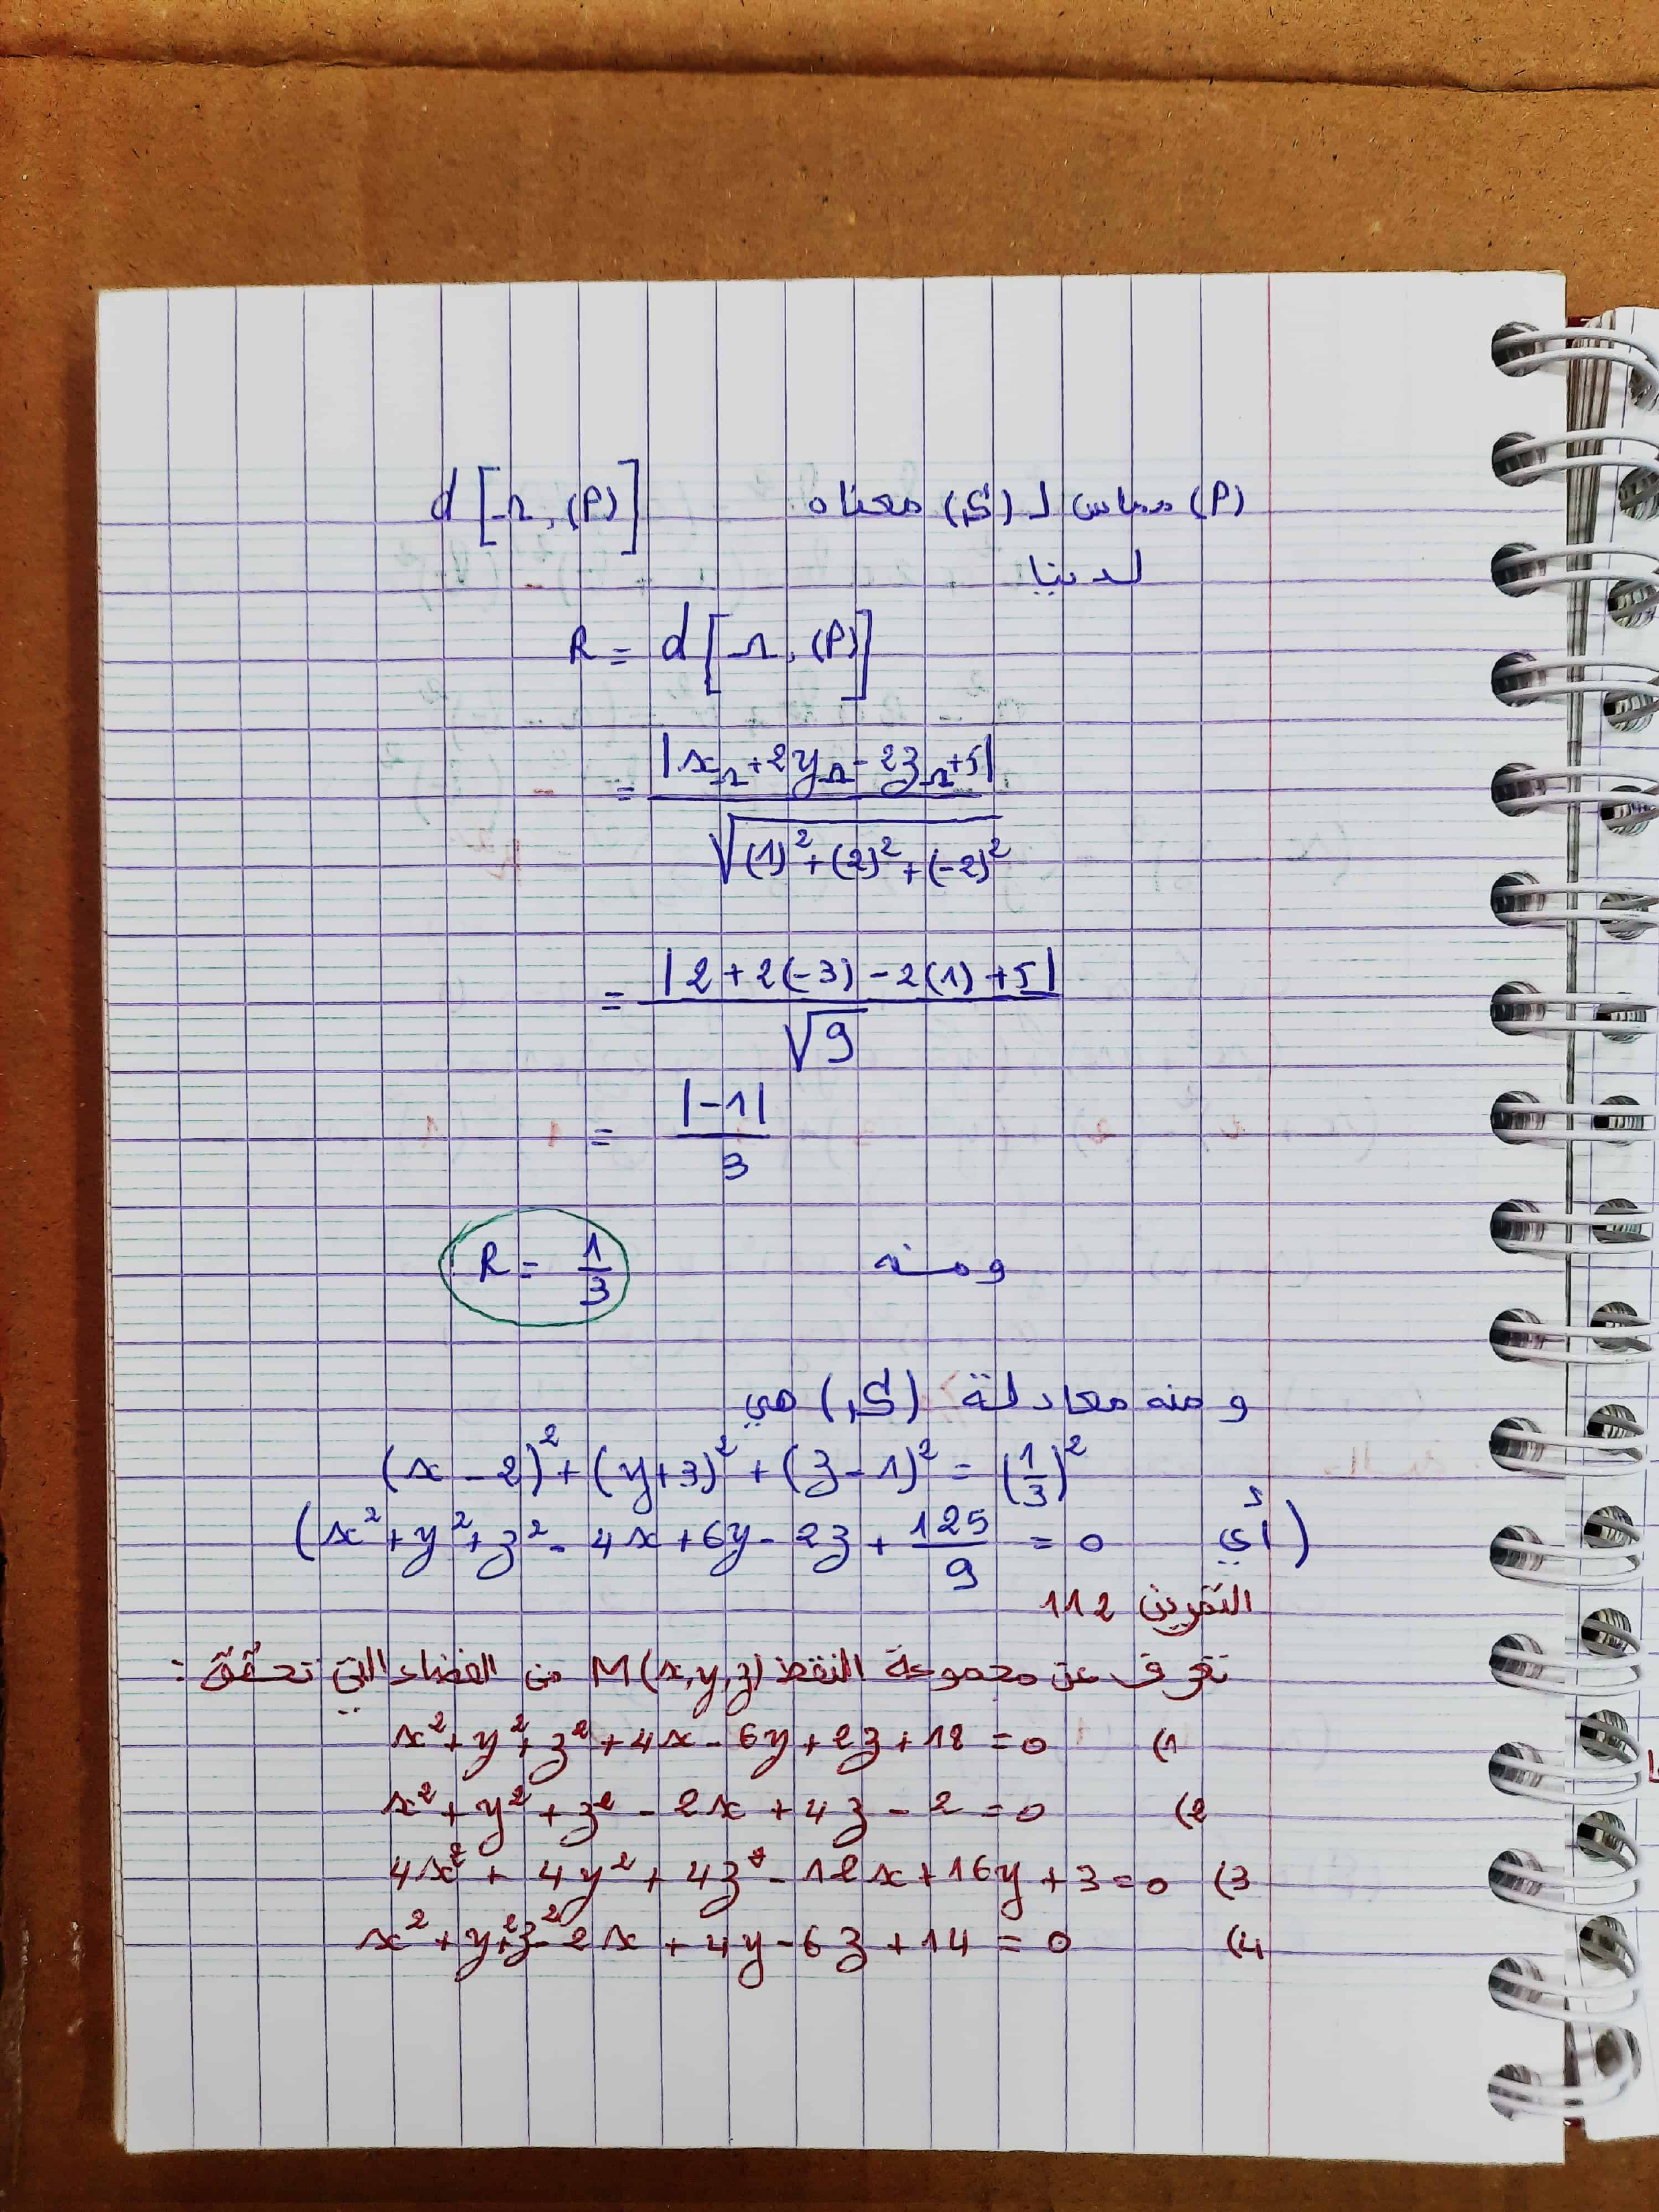 (P) مماس لـ (S) معناه d[Ω, (P)]
لدينا
R = d[Ω, (P)]
= |x_Ω + 2y_Ω - 2z_Ω + 5| / √((1)² + (2)² + (-2)²)
= |2 + 2(-3) - 2(1) + 5| / √9
= |-1| / 3
ومنه R = 1/3
ومنه معادلة (S) هي
(x - 2)² + (y + 3)² + (z - 1)² = (1/3)²
(أي x² + y² + z² - 4x + 6y - 2z + 125/9 = 0)
التمرين 112
تعرف عن مجموعة النقط M(x,y,z) من الفضاء التي تحقق :
1) x² + y² + z² + 4x - 6y + 2z + 18 = 0
2) x² + y² + z² - 2x + 4z - 2 = 0
3) 4x² + 4y² + 4z² - 12x + 16y + 3 = 0
4) x² + y² + z² - 2x + 4y - 6z + 14 = 0